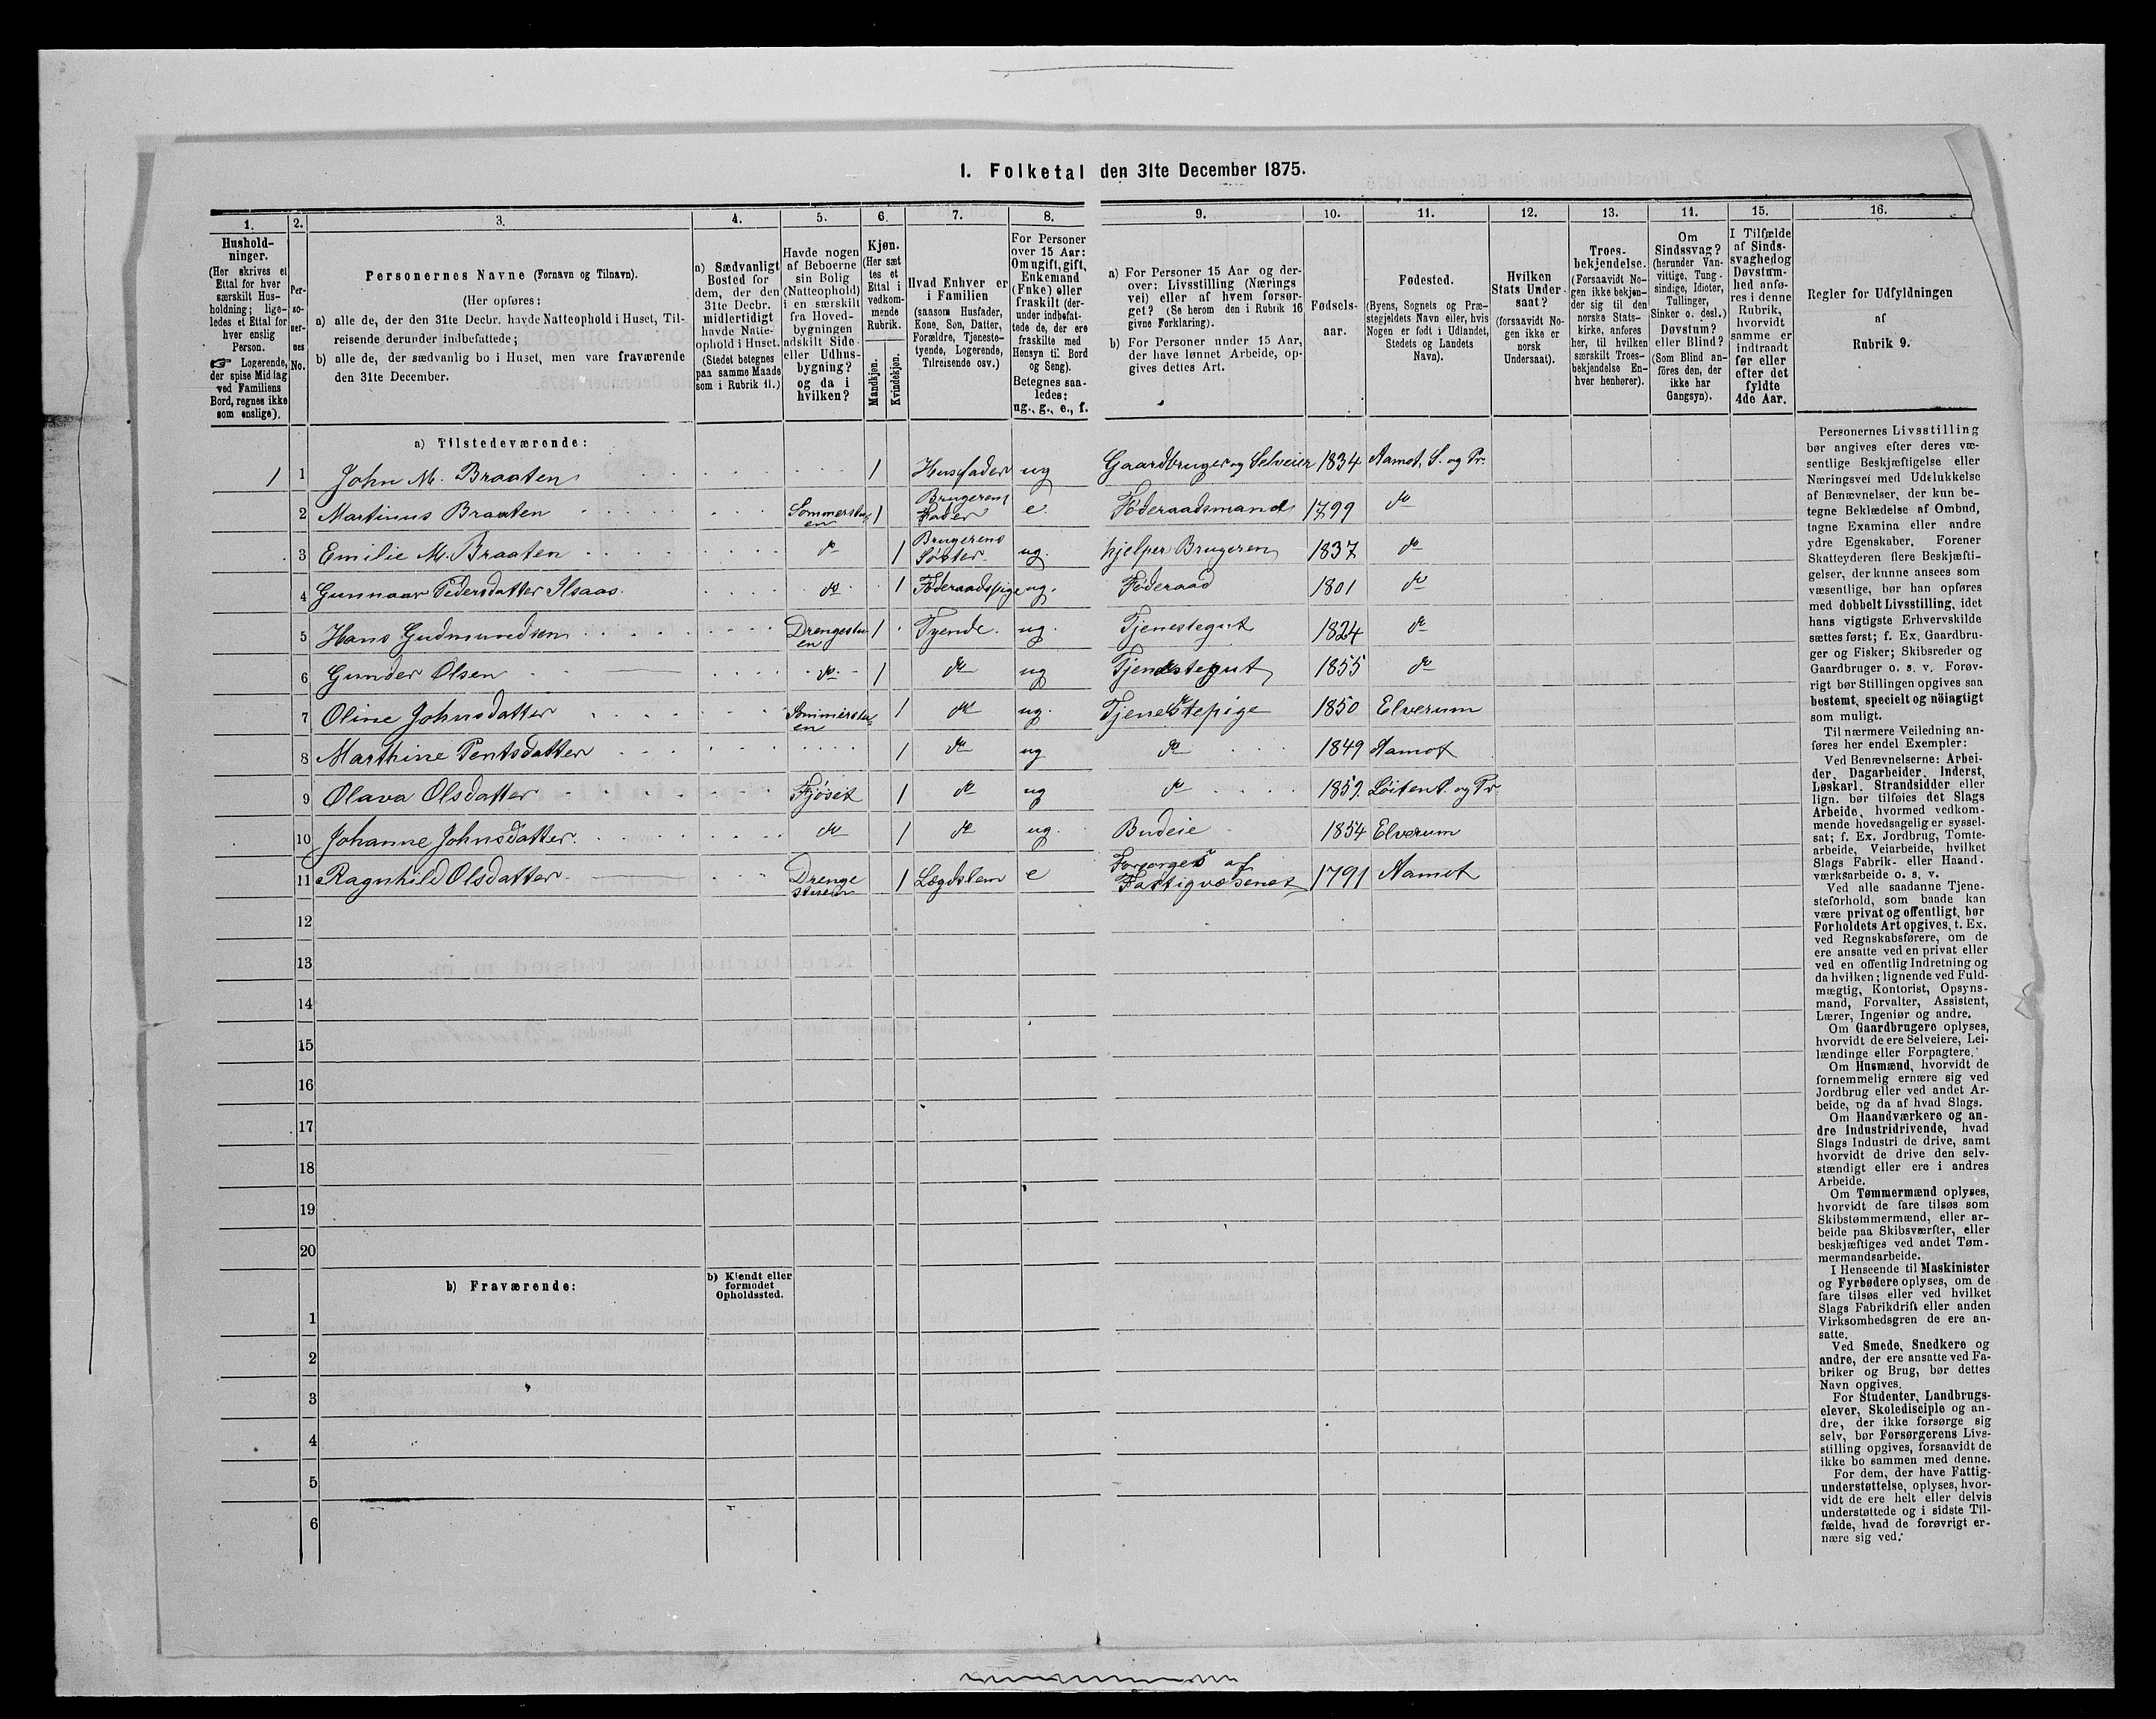 1. Folketal den 31te December 1875.
1. 2. 3. 4. 5. 6. 7. 8. 9. 10. 11. 12. 13. 14. 15. 16.
Hushold-
ninger.
(Her skrives et
Ettal for hver
særskilt Hus-
holdning; lige-
ledes et Ettal for
hver enslig
Person.
☞ Logerende,
der spise Middag
ved Familiens
Bord, regnes ikke
som enslige).
Per-
so-
ner-
nes
No.
Personernes Navne (Fornavn og Tilnavn).
(Her opføres:
a) alle de, der den 31te Decbr. havde Natteophold i Huset, Til-
reisende derunder indbefattede;
b) alle de, der sædvanlig bo i Huset, men vare fraværende
den 31te December.
a) Sædvanligt
Bosted for
dem, der den
31te Decbr.
midlertidigt
havde Natte-
ophold i Huset.
(Stedet betegnes
paa samme Maade
som i Rubrik 11.)
Havde nogen
af Beboerne
sin Bolig
(Natteophold)
i en særskilt
fra Hoved-
bygningen
adskilt Side-
eller Udhus-
bygning?
og da i
hvilken?
Kjøn.
(Her sæt-
tes et
Ettal i
vedkom-
mende
Rubrik.
Mandkjøn.
Kvindekjøn.
Hvad Enhver er
i Familien
(saasom Husfader,
Kone, Søn, Datter,
Forældre, Tjeneste-
tyende, Logerende,
Tilreisende osv.)
For Personer
over 15 Aar:
Om ugift, gift,
Enkemand
(Enke) eller
fraskilt (der-
under indbefat-
tede de, der ere
fraskilte med
Hensyn til Bord
og Seng).
Betegnes saa-
ledes:
ug., g., e., f.
a) For Personer 15 Aar og der-
over: Livsstilling (Nærings-
vei) eller af hvem forsør-
get? (Se herom den i Rubrik 16
givne Forklaring).
b) For Personer under 15 Aar,
der have lønnet Arbeide, op-
gives dettes Art.
Fødsels-
aar.
Fødested.
(Byens, Sognets og Præ-
stegjeldets Navn eller, hvis
Nogen er født i Udlandet,
Stedets og Landets
Navn).
Hvilken
Stats Under-
saat?
(forsaavidt No-
gen ikke er
norsk
Undersaat).
Troes-
bekjendelse.
(Forsaavidt No-
gen ikke bekjen-
der sig til den
norske Stats-
kirke, anføres
her, til hvilken
særskilt Troes-
bekjendelse En-
hver henhører).
Om
Sindssvag?
(herunder Van-
vittige, Tung-
sindige, Idioter,
Tullinger,
Sinker o. desl.)
Døvstum?
eller Blind?
(Som Blind an-
føres den, der
ikke har
Gangsyn).
I Tilfælde
af Sinds-
svaghed og
Døvstum-
hed anfø-
res i denne
Rubrik,
hvorvidt
samme er
indtraadt
før eller
efter det
fyldte
4de Aar.
Regler for Udfyldningen
af
Rubrik 9.
a) Tilstedeværende:
1 1 John M. Braaten 1 Husfader ug Gaardbruger og Selveier 1834 Aamot, S. og Pr.
2 Martinus Braaten Sommerstuen 1 Brugerens Fader e. Føderaadsmand 1799 do
3 Emilie M. Braaten do 1 Brugerens Søster ug. hjelper Brugeren 1837 do
4 Gunnaar Pedersdatter Ilsaas do 1 Føderaadspige ug. Føderaad 1801 do
5 Hans Gudmundsen Drengestuen 1 Tyende. ug. Tjenestegut 1824 do
6 Gunder Olsen do 1 do ug Tjenestegut 1855 do
7 Oline Johnsdatter Sommerstuen 1 do ug. Tjenestepige 1850 Elverum
8 Marthine Pentsdatter 1 do ug do 1849 Aamot
9 Olava Olsdatter Fjøset 1 do ug do 1859. Løiten S. og Pr
10 Johanne Johnsdatter. do 1 do ug. Budeie 1854 Elverum
11 Ragnhild Olsdatter Drengestuen 1 Lægdslem e Forsørges af Fattigvæsenet 1791 Aamot
12
13
14
15
16
17
18
19
20
b) Fraværende:
b) Kjendt eller
formodet
Opholdssted.
1
2
3
4
5
6
Personernes Livsstilling
bør angives efter deres væ-
sentlige Beskjæftigelse eller
Næringsvei med Udelukkelse
af Benævnelser, der kun be-
tegne Beklædelse af Ombud,
tagne Examina eller andre
ydre Egenskaber. Forener
Skatteyderen flere Beskjæfti-
gelser, der kunne ansees som
væsentlige, bør han opføres
med dobbelt Livsstilling, idet
hans vigtigste Erhvervskilde
sættes først; f. Ex. Gaardbru-
ger og Fisker; Skibsreder og
Gaardbruger o. s. v. Forøv-
rigt bør Stillingen opgives saa
bestemt, specielt og nöiagtigt
som muligt.
Til nærmere Veiledning an-
føres her endel Exempler:
Ved Benævnelserne: Arbei-
der, Dagarbeider, Inderst,
Løskarl, Strandsidder eller
lign. bør tilføies det Slags
Arbeide, hvormed vedkom-
mende hovedsagelig er syssel-
sat; f. Ex. Jordbrug, Tomte-
arbeide, Veiarbeide, hvilket
Slags Fabrik- eller Haand-
værksarbeide o. s. v.
Ved alle saadanne Tjene-
steforhold, som baade kan
være privat og offentligt, bør
Forholdets Art opgives, t. Ex.
ved Regnskabsførere, om de
ere ansatte ved en privat eller
ved en offentlig Indretning og
da hvilken; lignende ved Fuld-
mægtig, Kontorist, Opsyns-
mand, Forvalter, Assistent,
Lærer, Ingeniør og andre.
Om Gaardbrugere oplyses,
hvorvidt de ere Selveiere, Lei-
lændinge eller Forpagtere.
Om Husmænd, hvorvidt de
fornemmelig ernære sig ved
Jordbrug eller ved andet Ar-
beide, og da af hvad Slags.
Om Haandværkere og an-
dre Industridrivende, hvad
Slags Industri de drive, samt
hvorvidt de drive den selv-
stændigt eller ere i andres
Arbeide.
Om Tømmermænd oplyses,
hvorvidt de fare tilsøs som
Skibstømmermænd, eller ar-
beide paa Skibsværfter, eller
beskjæftiges ved andet Tøm-
mermandsarbeide.
I Henseende til Maskinister
og Fyrbødere oplyses, om de
fare tilsøs eller ved hvilket
Slags Fabrikdrift eller anden
Virksomhedsgren de ere an-
satte.
Ved Smede, Snedkere og
andre, der ere ansatte ved Fa-
briker og Brug, bør dettes
Navn opgives.
For Studenter, Landbrugs-
elever, Skoledisciple og an-
dre, der ikke forsørge sig
selv, bør Forsørgerens Livs-
stilling opgives, forsaavidt de
ikke bo sammen med denne.
For dem, der have Fattig-
understøttelse, oplyses, hvor-
vidt de ere helt eller delvis
understøttede og i sidste Til-
fælde, hvad de forøvrigt er-
nære sig ved.